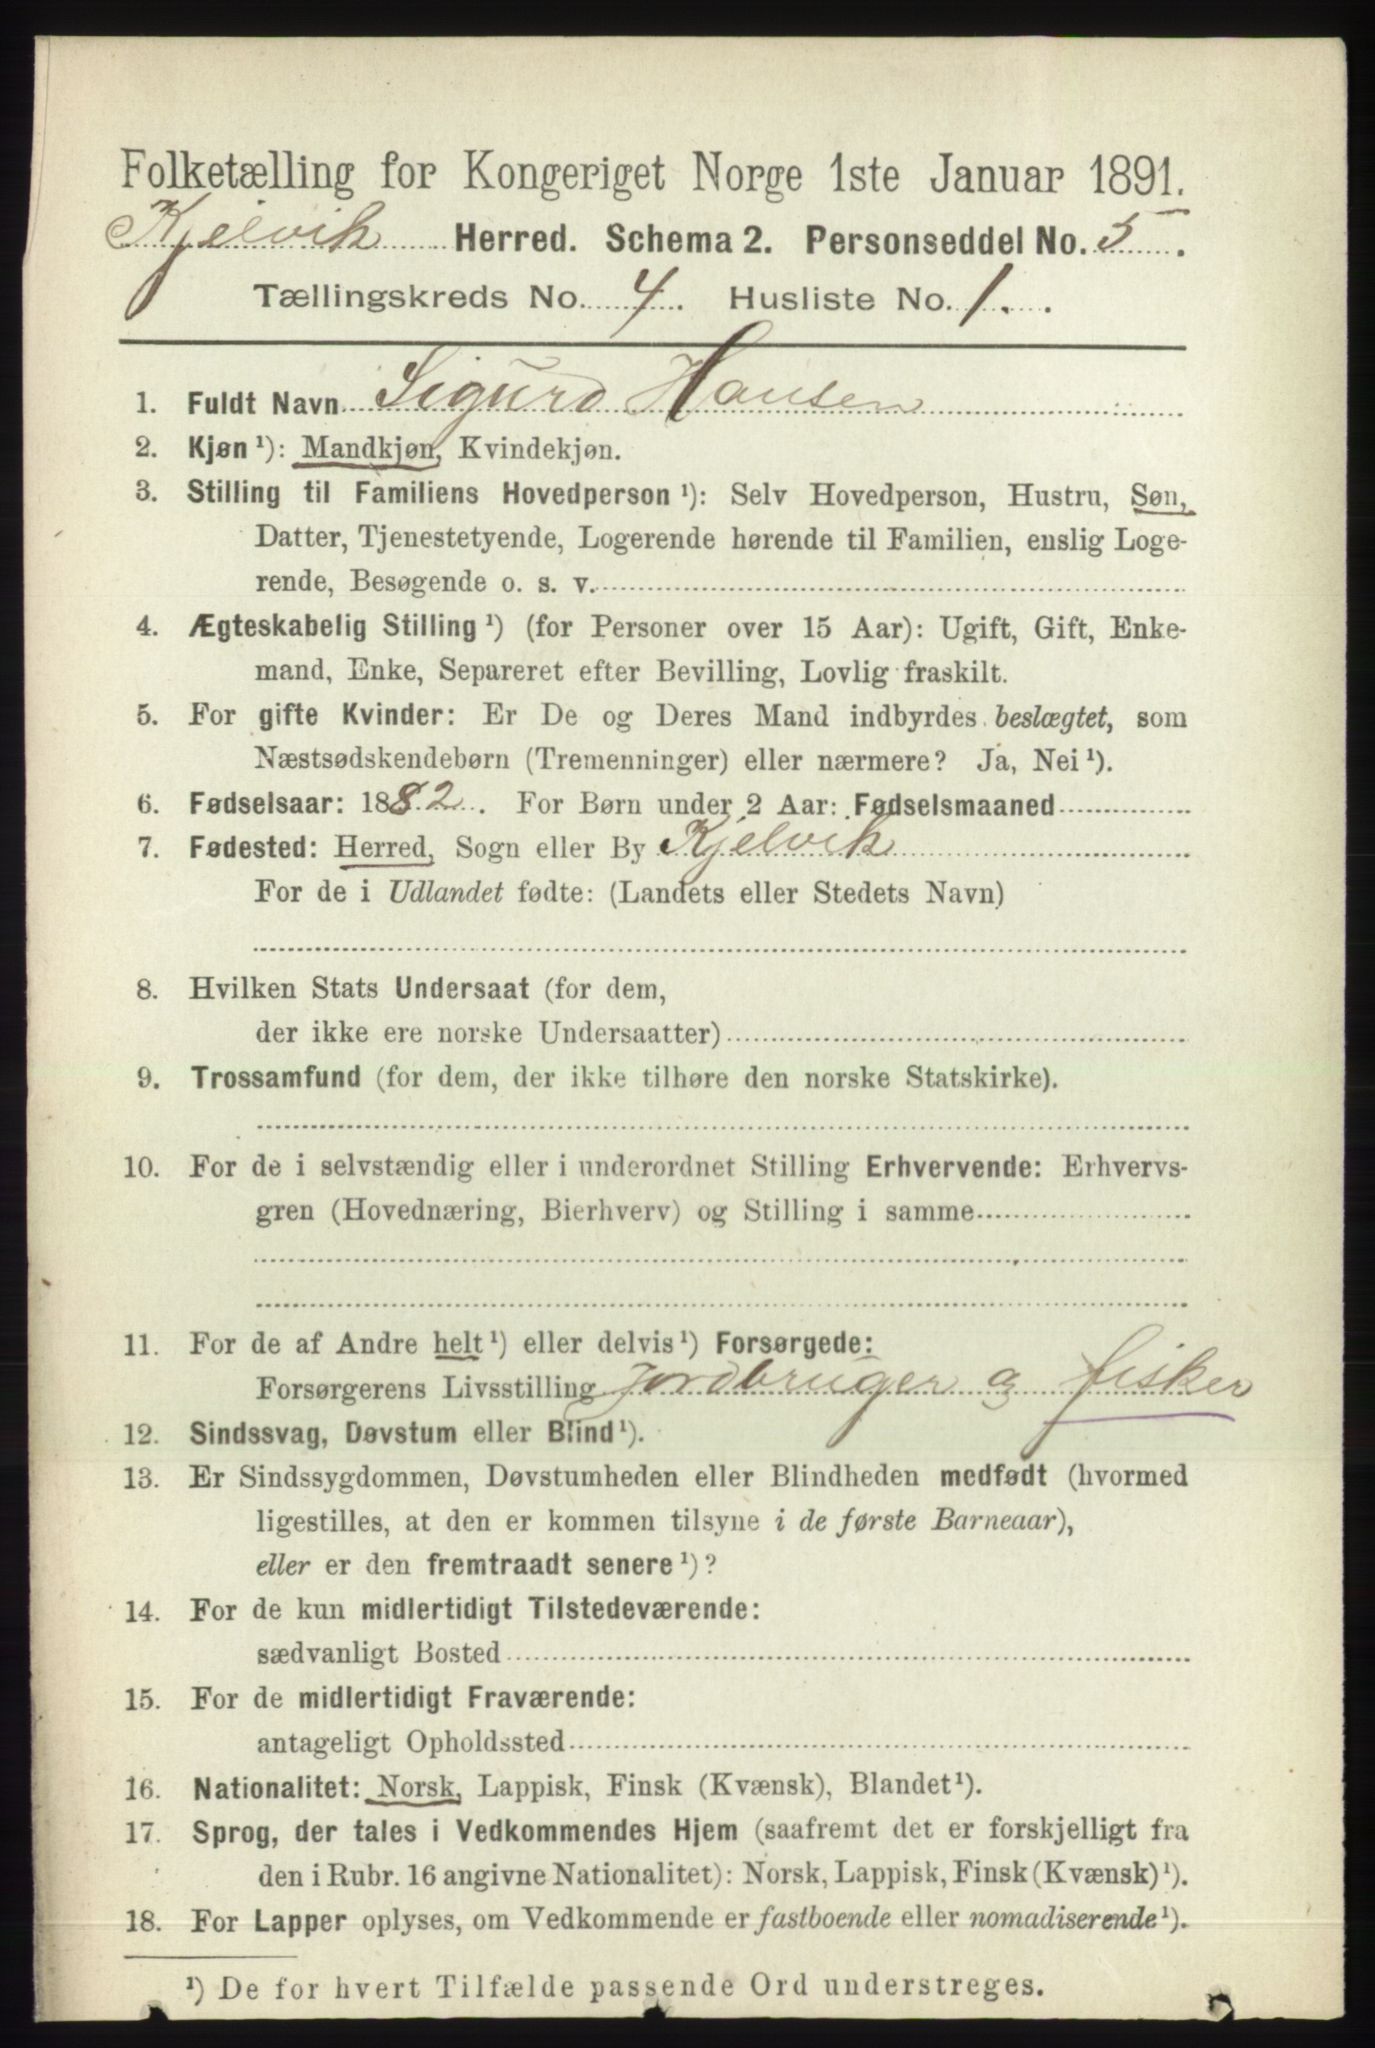 Folketælling for Kongeriget Norge 1ste Januar 1891.
Kjelvik Herred. Schema 2. Personseddel No. 5.
Tællingskreds No. 4. Husliste No. 1.
1. Fuldt Navn Sigurd Hansen
2. Kjøn ¹): Mandkjøn, Kvindekjøn.
3. Stilling til Familiens Hovedperson ¹): Selv Hovedperson, Hustru, Søn,
Datter, Tjenestetyende, Logerende hørende til Familien, enslig Loge-
rende, Besøgende o. s. v.
4. Ægteskabelig Stilling ¹) (for Personer over 15 Aar): Ugift, Gift, Enke-
mand, Enke, Separeret efter Bevilling, Lovlig fraskilt.
5. For gifte Kvinder: Er De og Deres Mand indbyrdes beslægtet, som
Næstsødskendebørn (Tremenninger) eller nærmere? Ja, Nei ¹).
6. Fødselsaar: 1882. For Børn under 2 Aar: Fødselsmaaned
7. Fødested: Herred, Sogn eller By Kjelvik
For de i Udlandet fødte: (Landets eller Stedets Navn)
8. Hvilken Stats Undersaat (for dem,
der ikke ere norske Undersaatter)
9. Trossamfund (for dem, der ikke tilhøre den norske Statskirke).
10. For de i selvstændig eller i underordnet Stilling Erhvervende: Erhvervs-
gren (Hovednæring, Bierhverv) og Stilling i samme
11. For de af Andre helt ¹) eller delvis ¹) Forsørgede:
Forsørgerens Livsstilling Jordbruger og fisker
12. Sindssvag, Døvstum eller Blind ¹).
13. Er Sindssygdommen, Døvstumheden eller Blindheden medfødt (hvormed
ligestilles, at den er kommen tilsyne i de første Barneaar),
eller er den fremtraadt senere ¹)?
14. For de kun midlertidigt Tilstedeværende:
sædvanligt Bosted
15. For de midlertidigt Fraværende:
antageligt Opholdssted
16. Nationalitet: Norsk, Lappisk, Finsk (Kvænsk), Blandet ¹).
17. Sprog, der tales i Vedkommendes Hjem (saafremt det er forskjelligt fra
den i Rubr. 16 angivne Nationalitet): Norsk, Lappisk, Finsk (Kvænsk) ¹).
18. For Lapper oplyses, om Vedkommende er fastboende eller nomadiserende ¹).
¹) De for hvert Tilfælde passende Ord understreges.